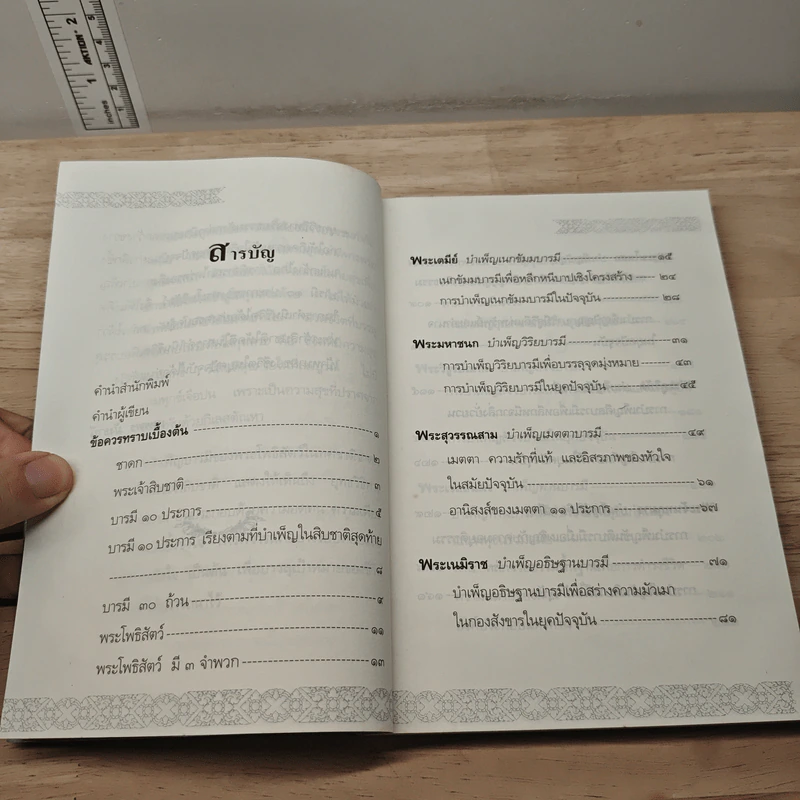 สารบัญ
คำนำสำนักพิมพ์
คำนำผู้เขียน
ข้อควรทราบเบื้องต้น ๑
ชาดก ๒
พระเจ้าสิบชาติ ๓
บารมี ๑๐ ประการ ๕
บารมี ๑๐ ประการ เรียงตามที่บำเพ็ญในสิบชาติสุดท้าย
๘
บารมี ๓๐ ถ้วน ๙
พระโพธิสัตว์ ๑๑
พระโพธิสัตว์ มี ๓ จำพวก ๑๓
พระเตมีย์ บำเพ็ญเนกขัมมบารมี ๑๕
เนกขัมมบารมีเพื่อหลีกหนีบาปเชิงโครงสร้าง ๒๔
การบำเพ็ญเนกขัมมบารมีในปัจจุบัน ๒๘
พระมหาชนก บำเพ็ญวิริยบารมี ๓๑
การบำเพ็ญวิริยบารมีเพื่อบรรลุจุดมุ่งหมาย ๔๓
การบำเพ็ญวิริยบารมีในยุคปัจจุบัน ๔๕
พระสุวรรณสาม บำเพ็ญเมตตาบารมี ๔๙
เมตตา ความรักที่แท้ และอิสรภาพของหัวใจ
ในสมัยปัจจุบัน ๖๑
อานิสงส์ของเมตตา ๑๑ ประการ ๖๗
พระเนมิราช บำเพ็ญอธิษฐานบารมี ๗๑
บำเพ็ญอธิษฐานบารมีเพื่อสร่างความมัวเมา
ในกองสังขารในยุคปัจจุบัน ๘๑
inches
1
2
AKTION
1
2
3
4
5